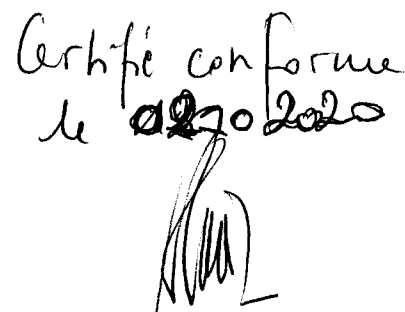 Certifié conforme
le 2020